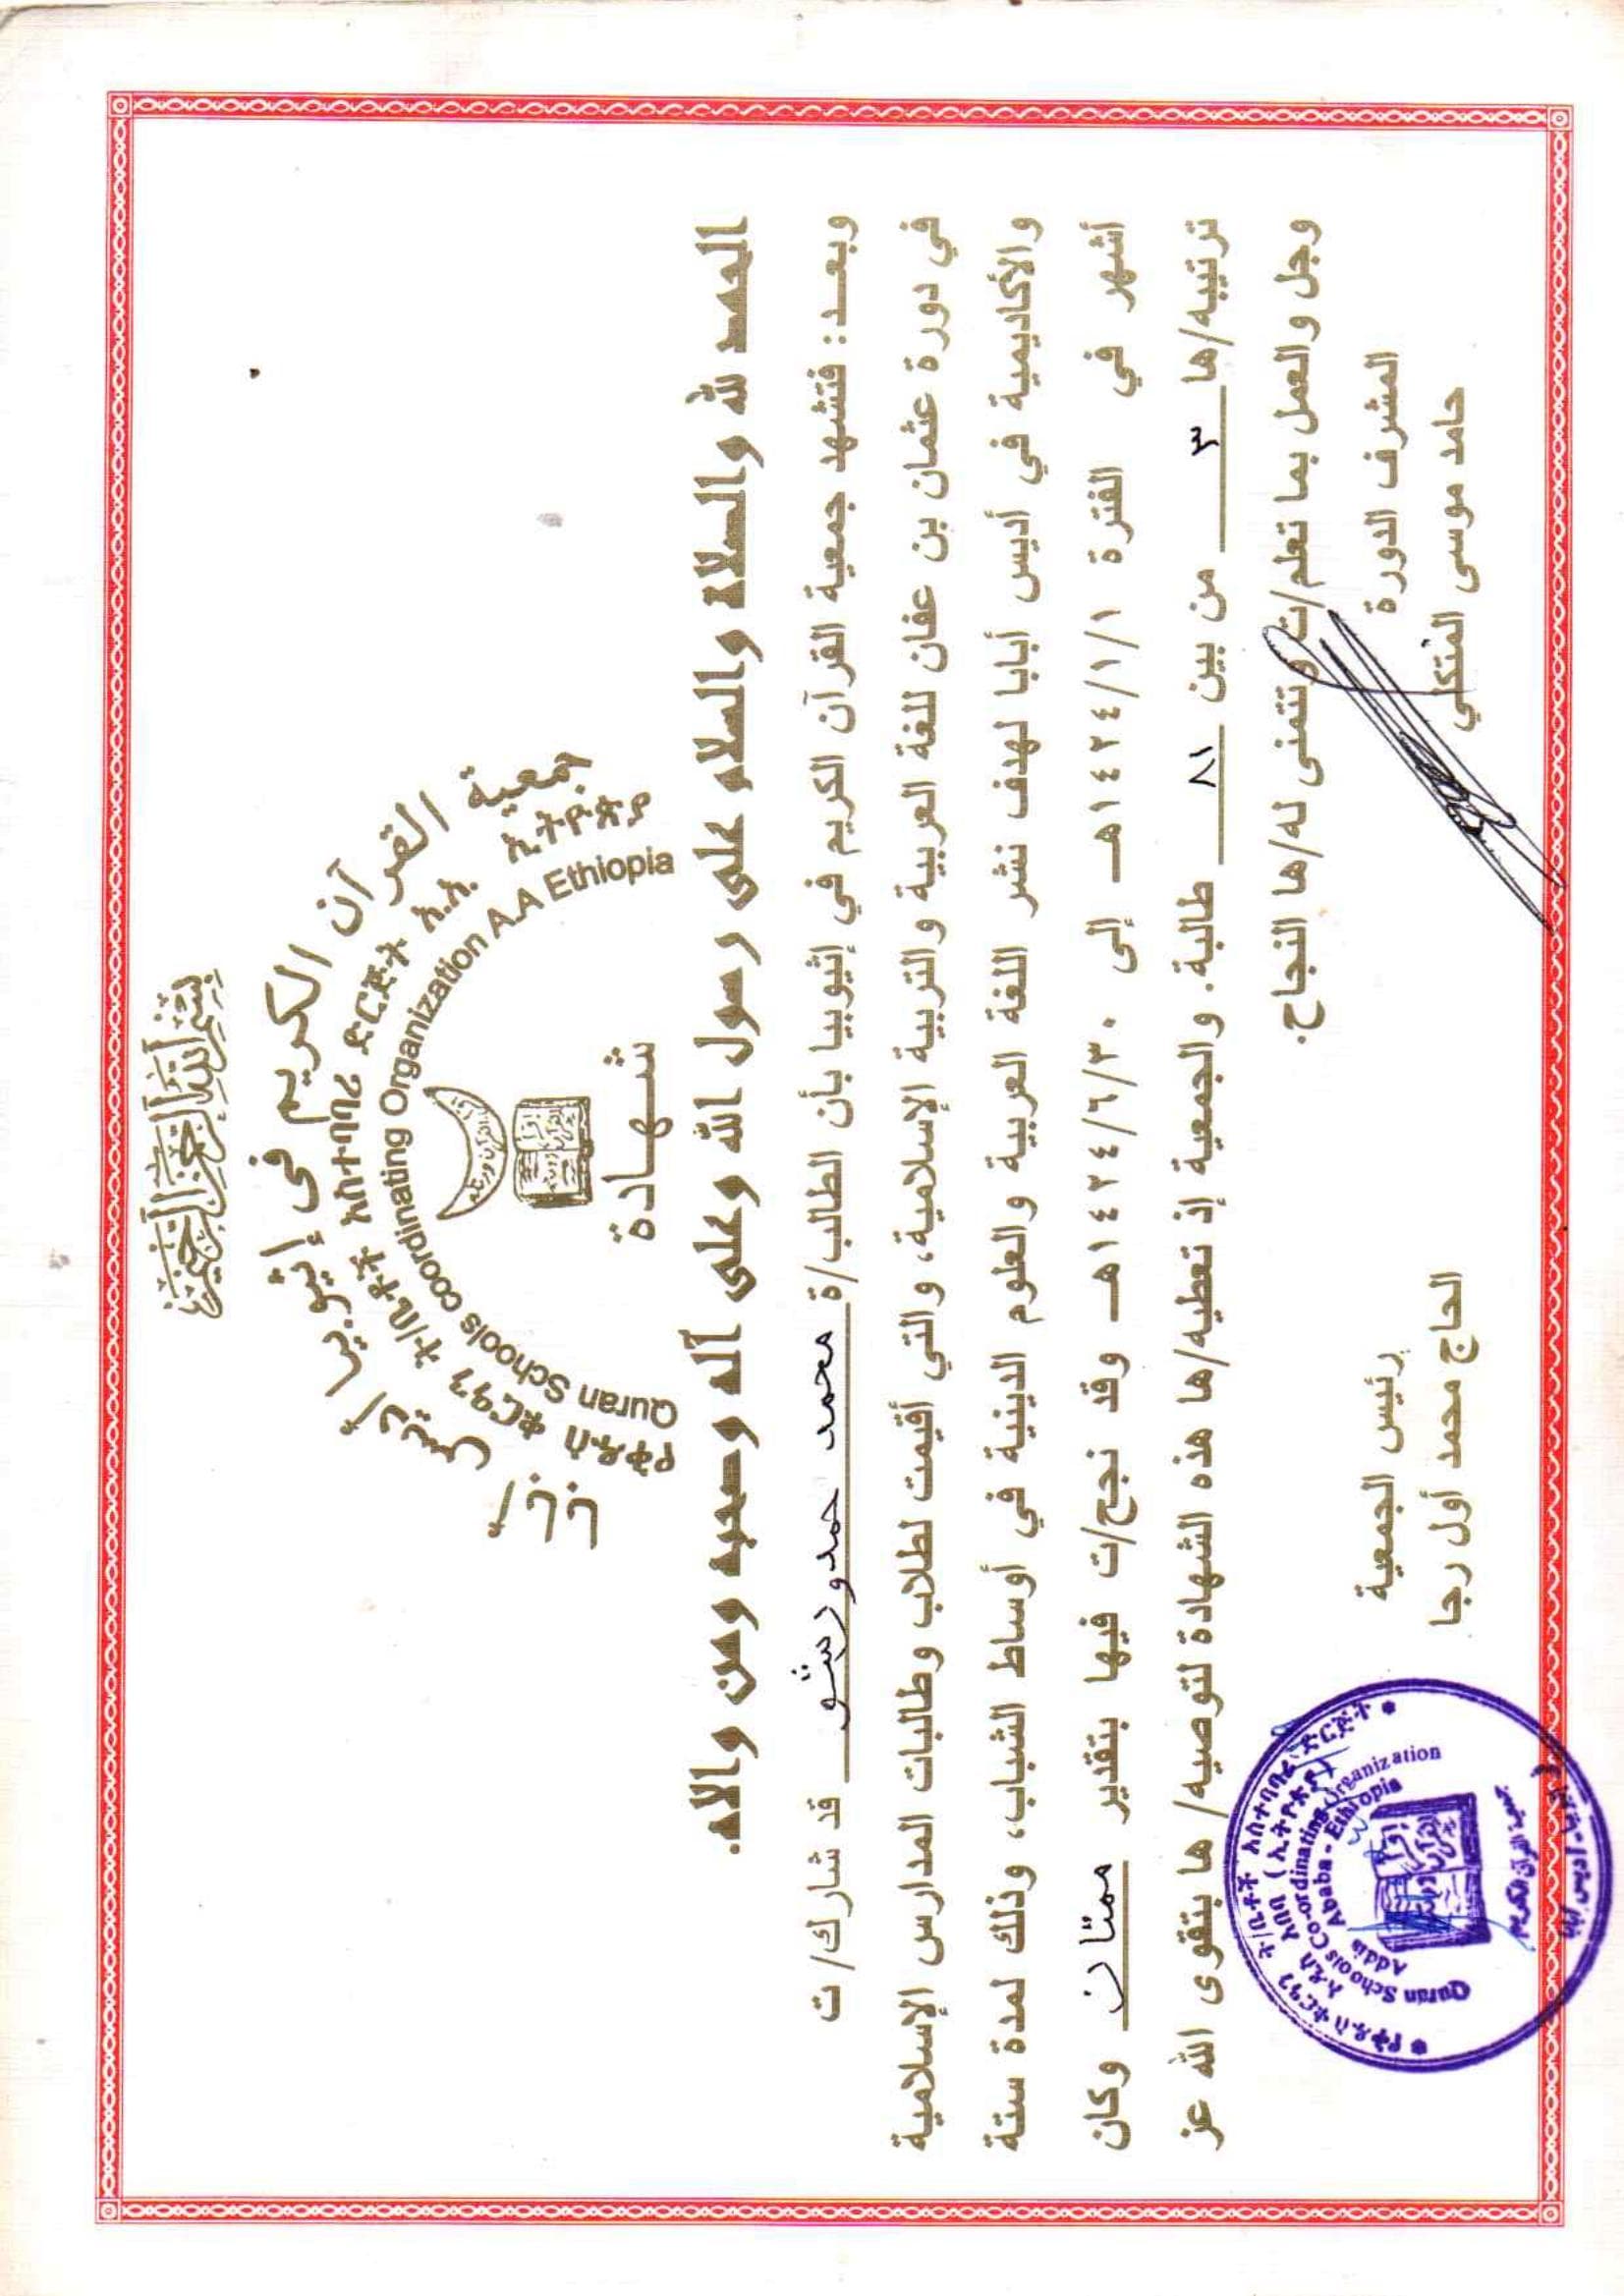 بسم الله الرحمن الرحيم
جمعية القرآن الكريم في إثيوبيا
የቅዱስ ቁርዓን ት/ቤቶች አስተባባሪ ድርጅት አ.አ. ኢትዮጵያ
Quran Schools coordinating Organization A.A Ethiopia
شهادة
الحمد لله والصلاة والسلام على رسول الله وعلى آله وصحبه ومن والاه.
وبعد: فتشهد جمعية القرآن الكريم في إثيوبيا بأن الطالب/ة محمد حمدو رشو قد شارك/ ت
في دورة عثمان بن عفان للغة العربية والتربية الإسلامية، والتي أقيمت لطلاب وطالبات المدارس الإسلامية
والأكاديمية في أديس أبابا لهدف نشر اللغة العربية والعلوم الدينية في أوساط الشباب، وذلك لمدة ستة
أشهر في الفترة ١/١/١٤٢٤هـ إلى ١٤٢٤/٦/٣٠هـ وقد نجح/ت فيها بتقدير ممتاز وكان
ترتيبه/ها ٣ من بين ٨١ طالبة. والجمعية إذ تعطيه/ها هذه الشهادة لتوصيه/ ها بتقوى الله عز
وجل والعمل بما تعلم/ت وتتمنى له/ها النجاح.
المشرف الدورة
حامد موسى المتكلي
رئيس الجمعية
الحاج محمد أول رجا
የቅዱስ ቁርዓን ት/ቤቶች አስተባባሪ ድርጅት
አዲስ አበባ (ኢትዮጵያ)
Quran Schools Co-ordinating Organization
Addis Ababa - Ethiopia
جمعية القرآن الكريم